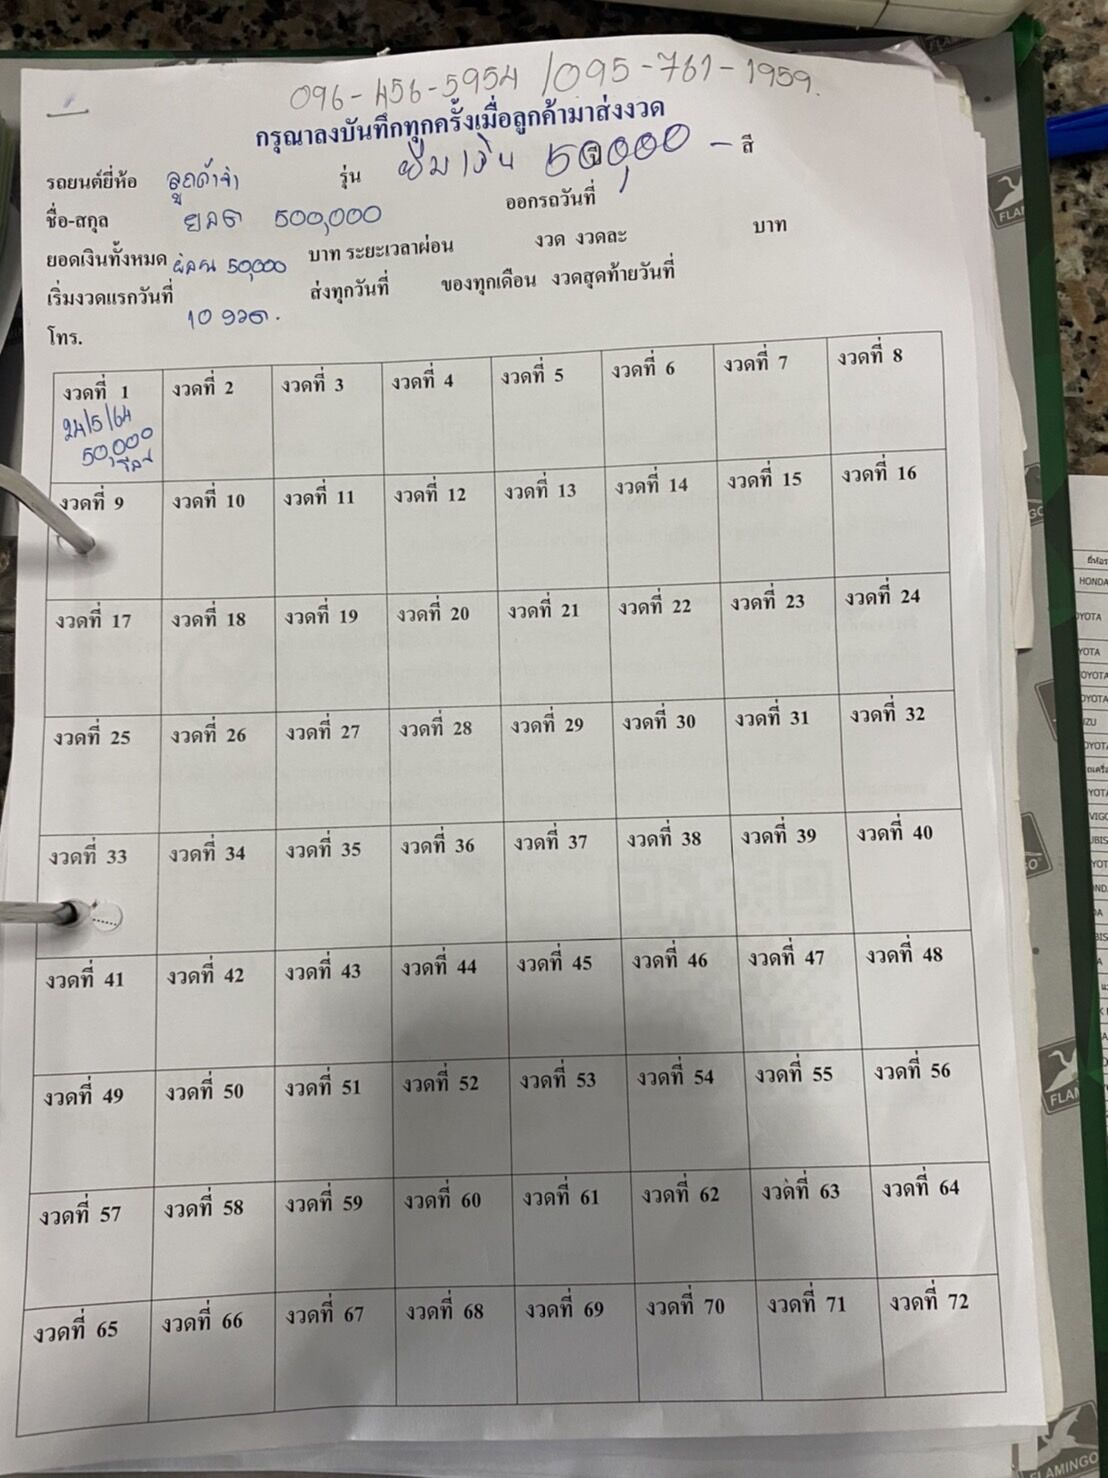 096-456-5954 / 095-761-1959.
กรุณาลงบันทึกทุกครั้งเมื่อลูกค้ามาส่งงวด
รถยนต์ยี่ห้อ ลูกค้าจำ รุ่น ยืมเงิน 500,000 - สี
ชื่อ-สกุล ยอด 500,000 ออกรถวันที่
ยอดเงินทั้งหมด ผ่อน 50,000 บาท ระยะเวลาผ่อน งวด งวดละ บาท
เริ่มงวดแรกวันที่ ส่งทุกวันที่ ของทุกเดือน งวดสุดท้ายวันที่
10 งวด.
โทร.
งวดที่ 1 งวดที่ 2 งวดที่ 3 งวดที่ 4 งวดที่ 5 งวดที่ 6 งวดที่ 7 งวดที่ 8
24/5/64
50,000
งวดที่ 9 งวดที่ 10 งวดที่ 11 งวดที่ 12 งวดที่ 13 งวดที่ 14 งวดที่ 15 งวดที่ 16
งวดที่ 17 งวดที่ 18 งวดที่ 19 งวดที่ 20 งวดที่ 21 งวดที่ 22 งวดที่ 23 งวดที่ 24
งวดที่ 25 งวดที่ 26 งวดที่ 27 งวดที่ 28 งวดที่ 29 งวดที่ 30 งวดที่ 31 งวดที่ 32
งวดที่ 33 งวดที่ 34 งวดที่ 35 งวดที่ 36 งวดที่ 37 งวดที่ 38 งวดที่ 39 งวดที่ 40
งวดที่ 41 งวดที่ 42 งวดที่ 43 งวดที่ 44 งวดที่ 45 งวดที่ 46 งวดที่ 47 งวดที่ 48
งวดที่ 49 งวดที่ 50 งวดที่ 51 งวดที่ 52 งวดที่ 53 งวดที่ 54 งวดที่ 55 งวดที่ 56
งวดที่ 57 งวดที่ 58 งวดที่ 59 งวดที่ 60 งวดที่ 61 งวดที่ 62 งวดที่ 63 งวดที่ 64
งวดที่ 65 งวดที่ 66 งวดที่ 67 งวดที่ 68 งวดที่ 69 งวดที่ 70 งวดที่ 71 งวดที่ 72
HONDA
FLAMINGO